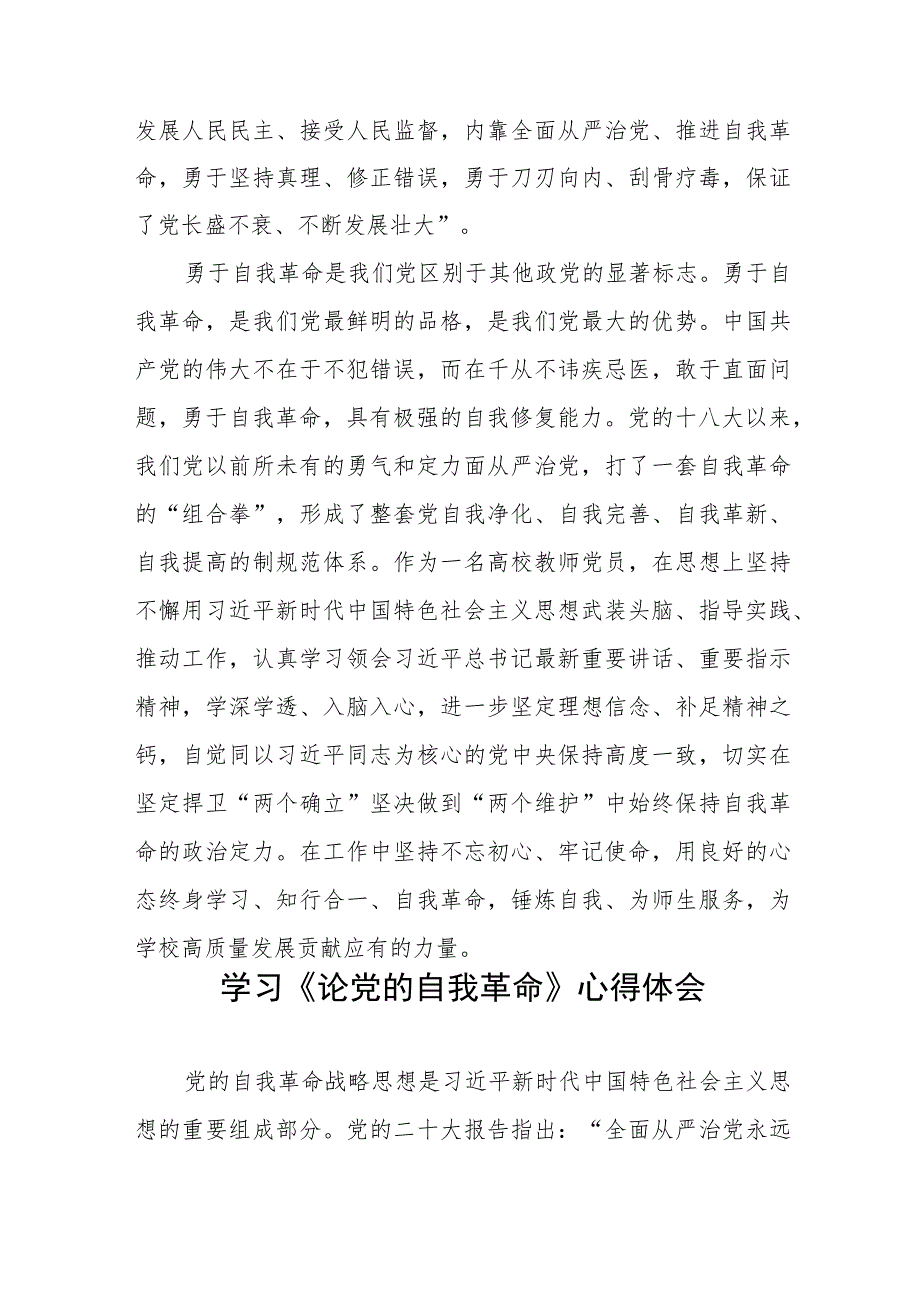 发展人民民主、接受人民监督，内靠全面从严治党、推进自我革
命，勇于坚持真理、修正错误，勇于刀刃向内、刮骨疗毒，保证
了党长盛不衰、不断发展壮大”。
勇于自我革命是我们党区别于其他政党的显著标志。勇于自
我革命，是我们党最鲜明的品格，是我们党最大的优势。中国共
产党的伟大不在于不犯错误，而在千从不讳疾忌医，敢于直面问
题，勇于自我革命，具有极强的自我修复能力。党的十八大以来，
我们党以前所未有的勇气和定力面从严治党，打了一套自我革命
的“组合拳”，形成了整套党自我净化、自我完善、自我革新、
自我提高的制规范体系。作为一名高校教师党员，在思想上坚持
不懈用习近平新时代中国特色社会主义思想武装头脑、指导实践、
推动工作，认真学习领会习近平总书记最新重要讲话、重要指示
精神，学深学透、入脑入心，进一步坚定理想信念、补足精神之
钙，自觉同以习近平同志为核心的党中央保持高度一致，切实在
坚定捍卫“两个确立”坚决做到“两个维护”中始终保持自我革
命的政治定力。在工作中坚持不忘初心、牢记使命，用良好的心
态终身学习、知行合一、自我革命，锤炼自我、为师生服务，为
学校高质量发展贡献应有的力量。
学习《论党的自我革命》心得体会
党的自我革命战略思想是习近平新时代中国特色社会主义思
想的重要组成部分。党的二十大报告指出：“全面从严治党永远